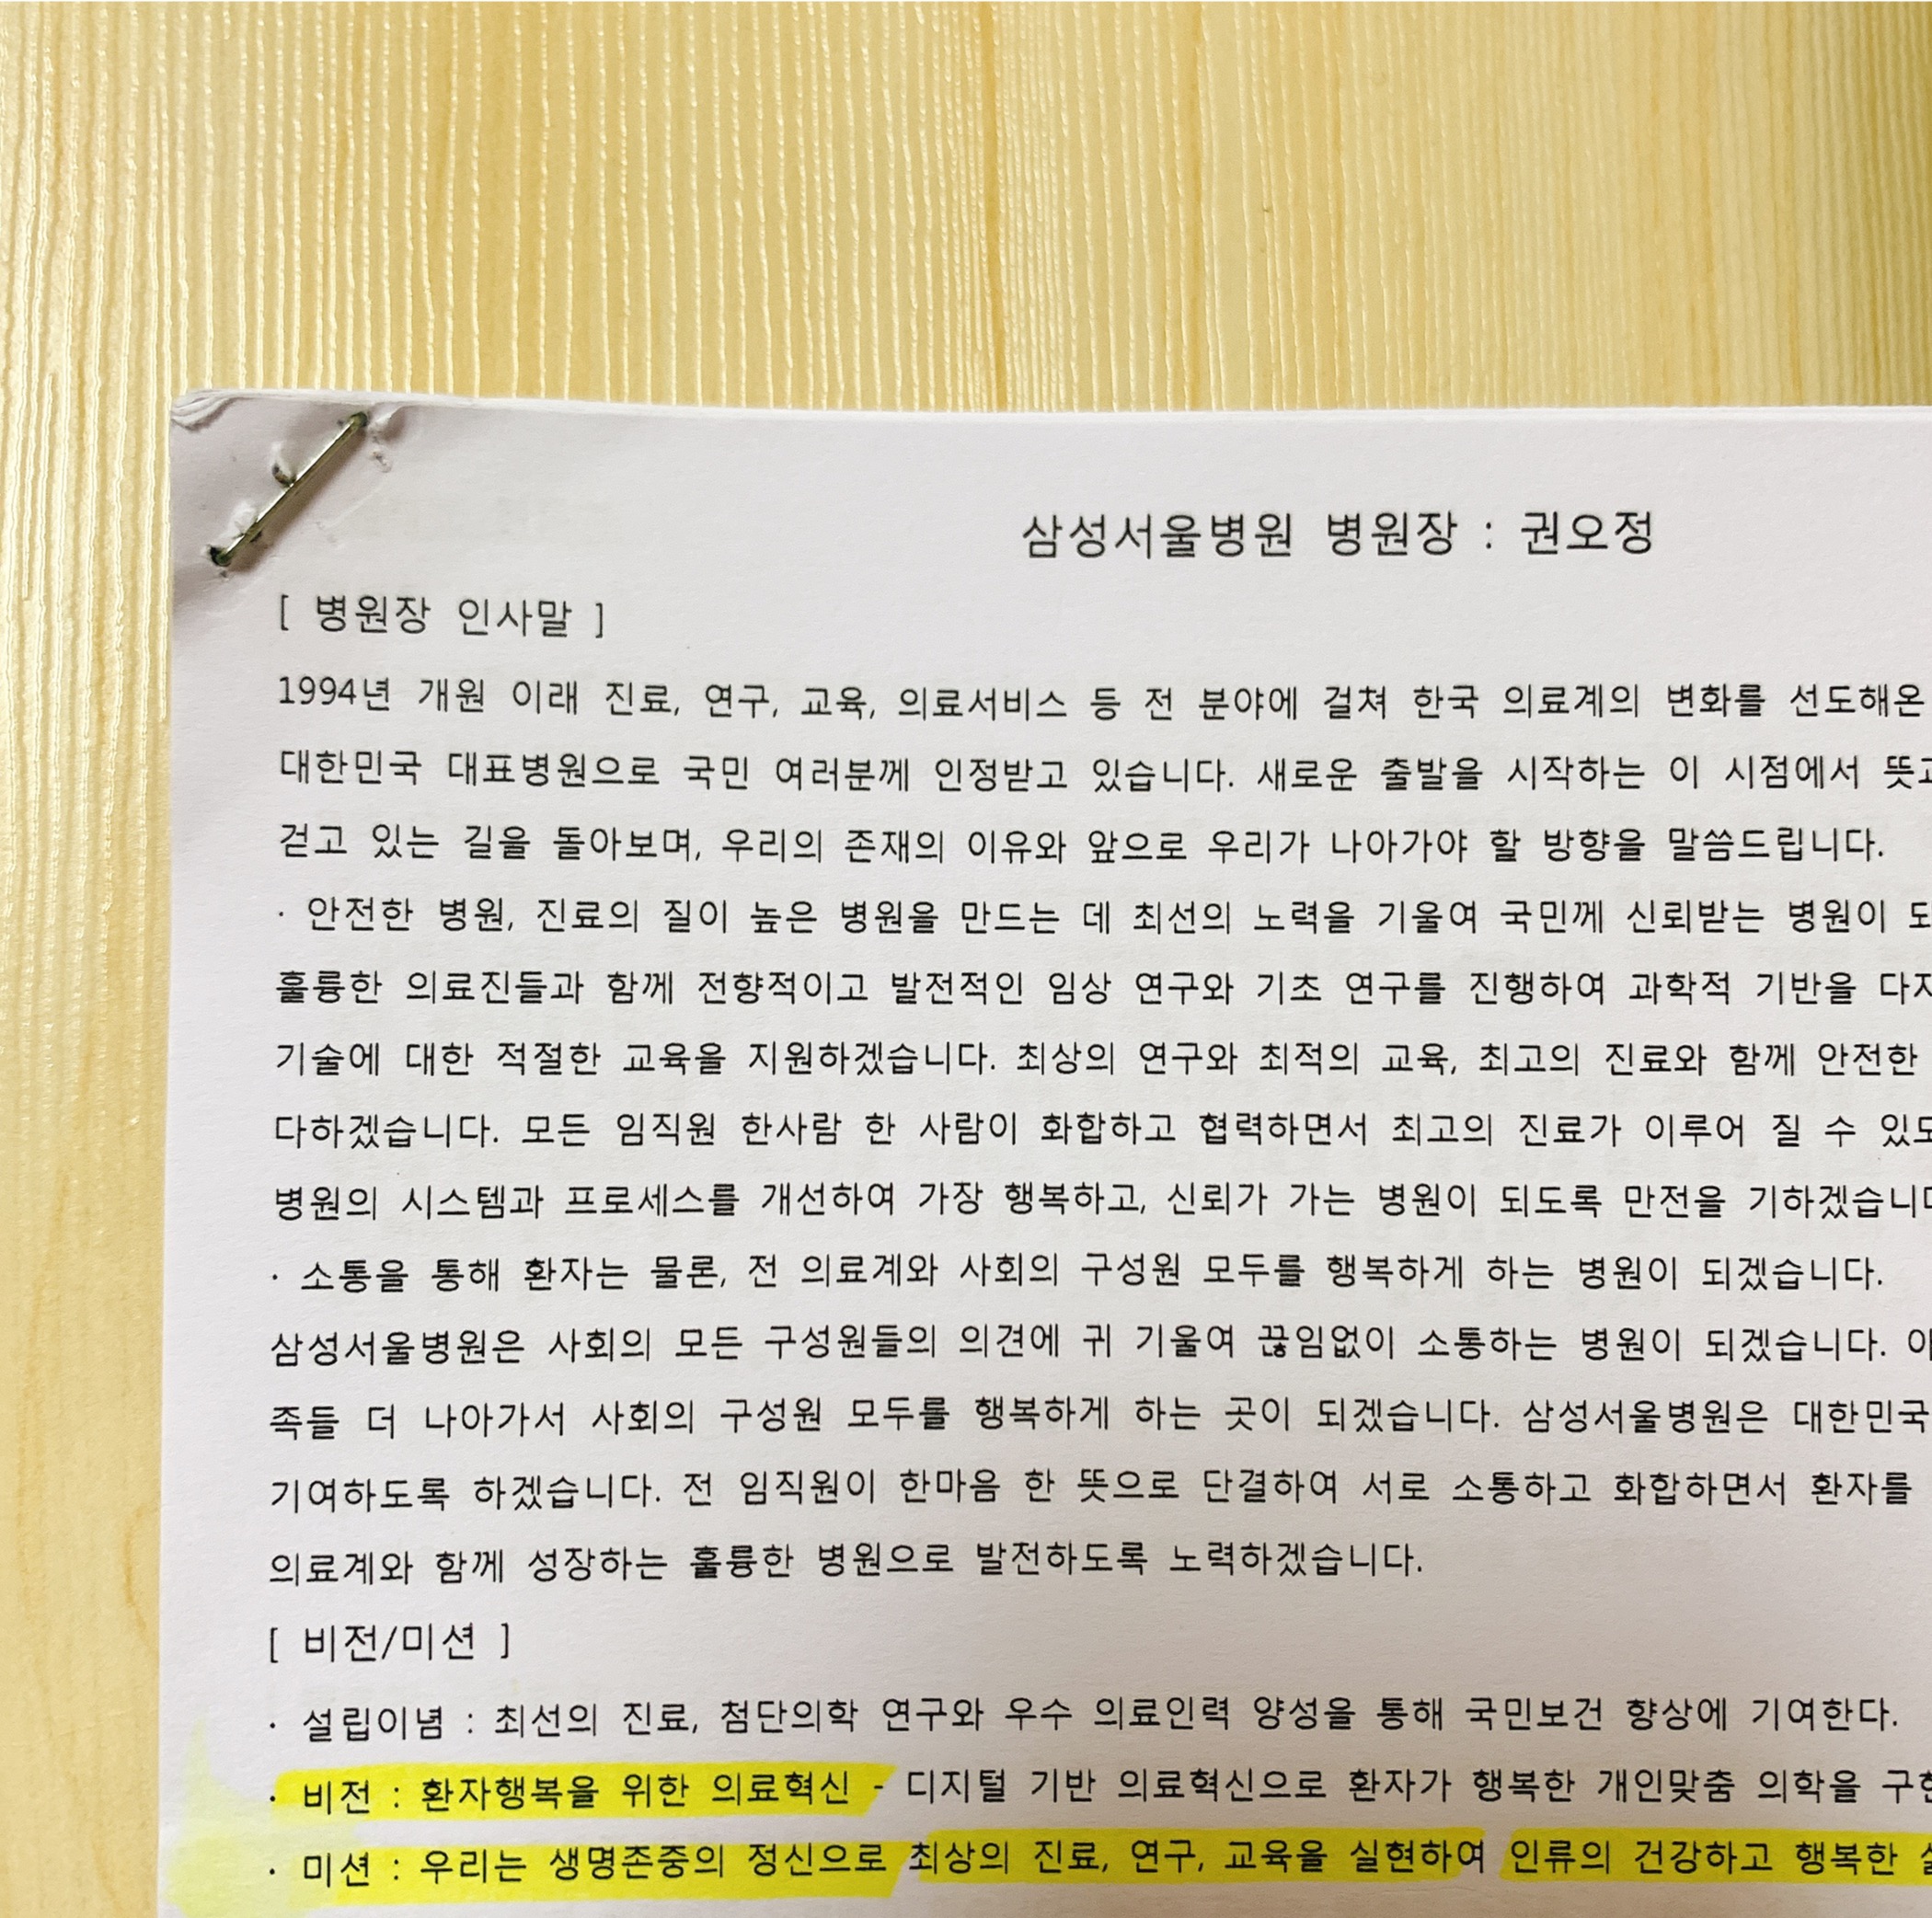 삼성서울병원 병원장 : 권오정
[ 병원장 인사말 ]
1994년 개원 이래 진료, 연구, 교육, 의료서비스 등 전 분야에 걸쳐 한국 의료계의 변화를 선도해온
대한민국 대표병원으로 국민 여러분께 인정받고 있습니다. 새로운 출발을 시작하는 이 시점에서
걷고 있는 길을 돌아보며, 우리의 존재의 이유와 앞으로 우리가 나아가야 할 방향을 말씀드립니다.
· 안전한 병원, 진료의 질이 높은 병원을 만드는 데 최선의 노력을 기울여 국민께 신뢰받는 병원이
훌륭한 의료진들과 함께 전향적이고 발전적인 임상 연구와 기초 연구를 진행하여 과학적 기반을
기술에 대한 적절한 교육을 지원하겠습니다. 최상의 연구와 최적의 교육, 최고의 진료와 함께 안전한
다하겠습니다. 모든 임직원 한사람 한 사람이 화합하고 협력하면서 최고의 진료가 이루어 질 수
병원의 시스템과 프로세스를 개선하여 가장 행복하고, 신뢰가 가는 병원이 되도록 만전을
· 소통을 통해 환자는 물론, 전 의료계와 사회의 구성원 모두를 행복하게 하는 병원이 되겠습니다.
삼성서울병원은 사회의 모든 구성원들의 의견에 귀 기울여 끊임없이 소통하는 병원이 되겠습니다.
족들 더 나아가서 사회의 구성원 모두를 행복하게 하는 곳이 되겠습니다. 삼성서울병원은 대한민국
기여하도록 하겠습니다. 전 임직원이 한마음 한 뜻으로 단결하여 서로 소통하고 화합하면서 환자를
의료계와 함께 성장하는 훌륭한 병원으로 발전하도록 노력하겠습니다.
[ 비전/미션 ]
· 설립이념 : 최선의 진료, 첨단의학 연구와 우수 의료인력 양성을 통해 국민보건 향상에 기여한다.
· 비전 : 환자행복을 위한 의료혁신 - 디지털 기반 의료혁신으로 환자가 행복한 개인맞춤 의학을
· 미션 : 우리는 생명존중의 정신으로 최상의 진료, 연구, 교육을 실현하여 인류의 건강하고 행복한